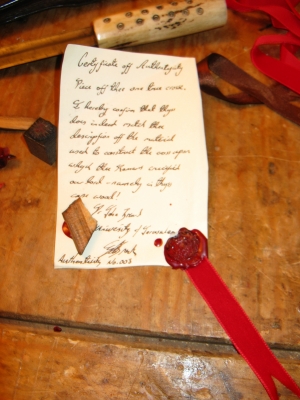 Certyficate off Authentycity
Piece off thee one true cross.
I hereby confirm that thys
does indeed match thee
description off the material
used to construct the cross upon
whych thee Romans crucified
our Lord - namely in thys
case wood!
University of Jerusalem
Authenticity no. 003